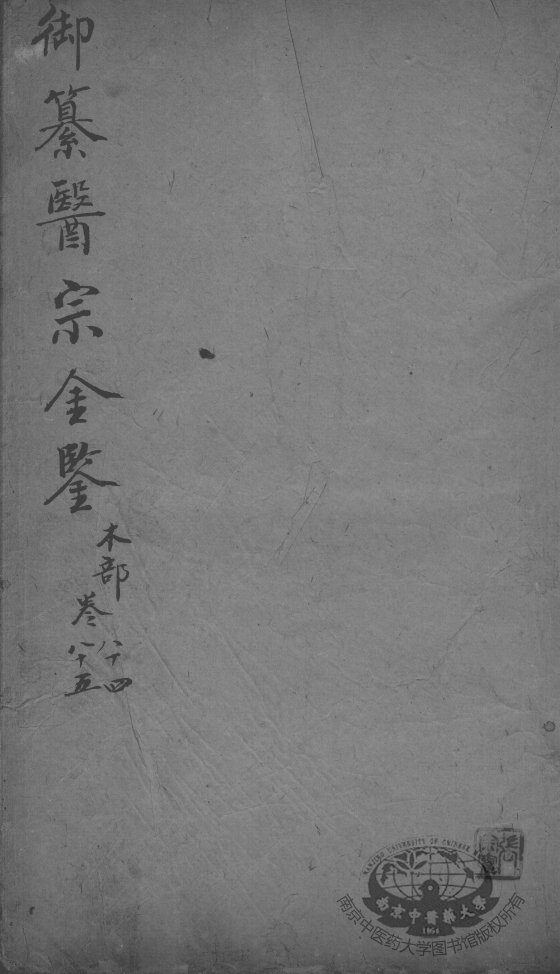 御纂醫宗金鑒
木部
卷
八十四
八十五
NANJING UNIVERSITY OF CHINESE
南京中醫藥大學
1954
南京中医药大学图书馆版权所有